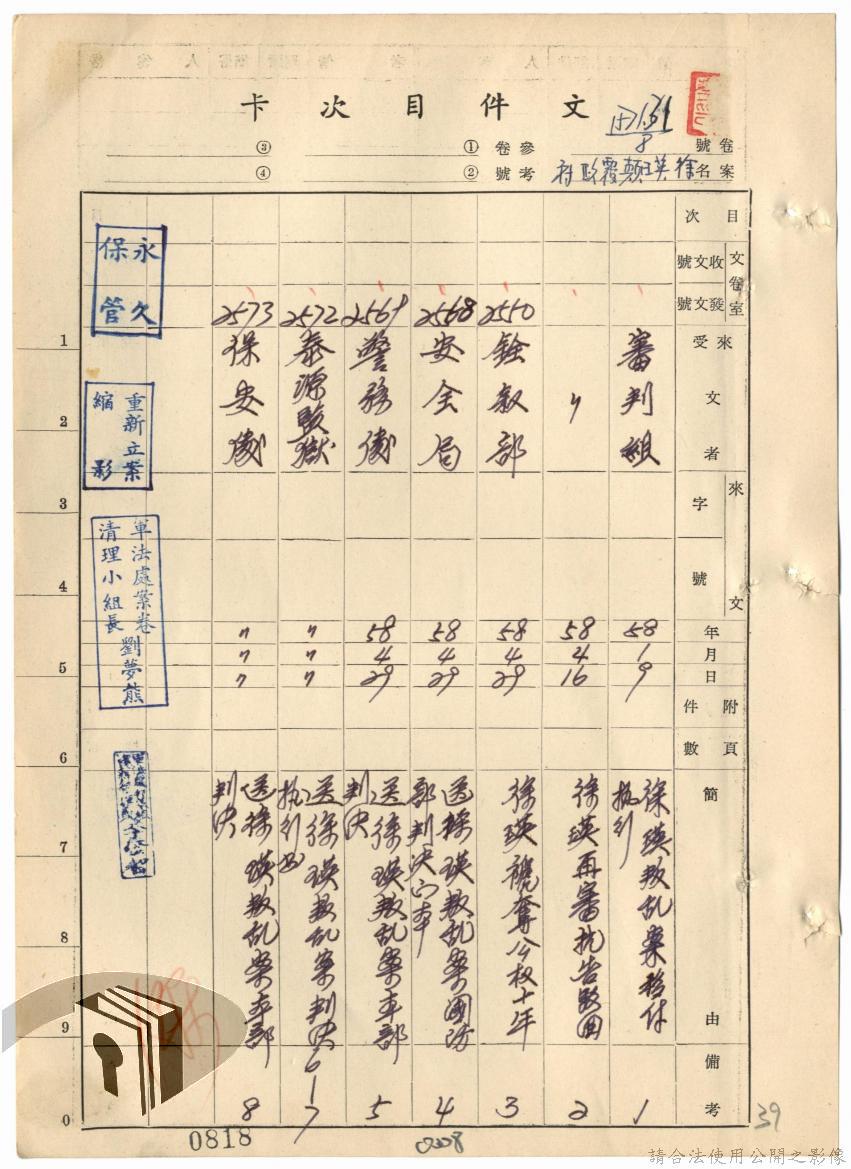 文件目次卡
卷號
1571.31
8
案名
徐瑛顛覆政府
參考卷號
①
②
③
④
目次
文卷室
收文號
發文號
來受文者
來文
字
號
年月日
附件
頁數
簡由
備考
審判組
58
1
9
徐瑛叛乱案移付
執行
1
〃
58
4
16
徐瑛再審抗告駁回
2
2550
銓叙部
58
4
29
徐瑛褫奪公权十年
3
2568
安全局
58
4
29
送徐瑛叛乱案國防
部判決正本
4
2569
警務處
58
4
29
送徐瑛叛乱案本部
判決
5
2572
泰源監獄
〃
〃
〃
送徐瑛叛乱案判決
執行書
6-7
2573
保安處
〃
〃
〃
送徐瑛叛乱案本部
判決
8
永久
保管
重新立案
縮影
軍法處案卷
清理小組長劉夢熊
1
2
3
4
5
6
7
8
9
0
0818
39
請合法使用公開之影像